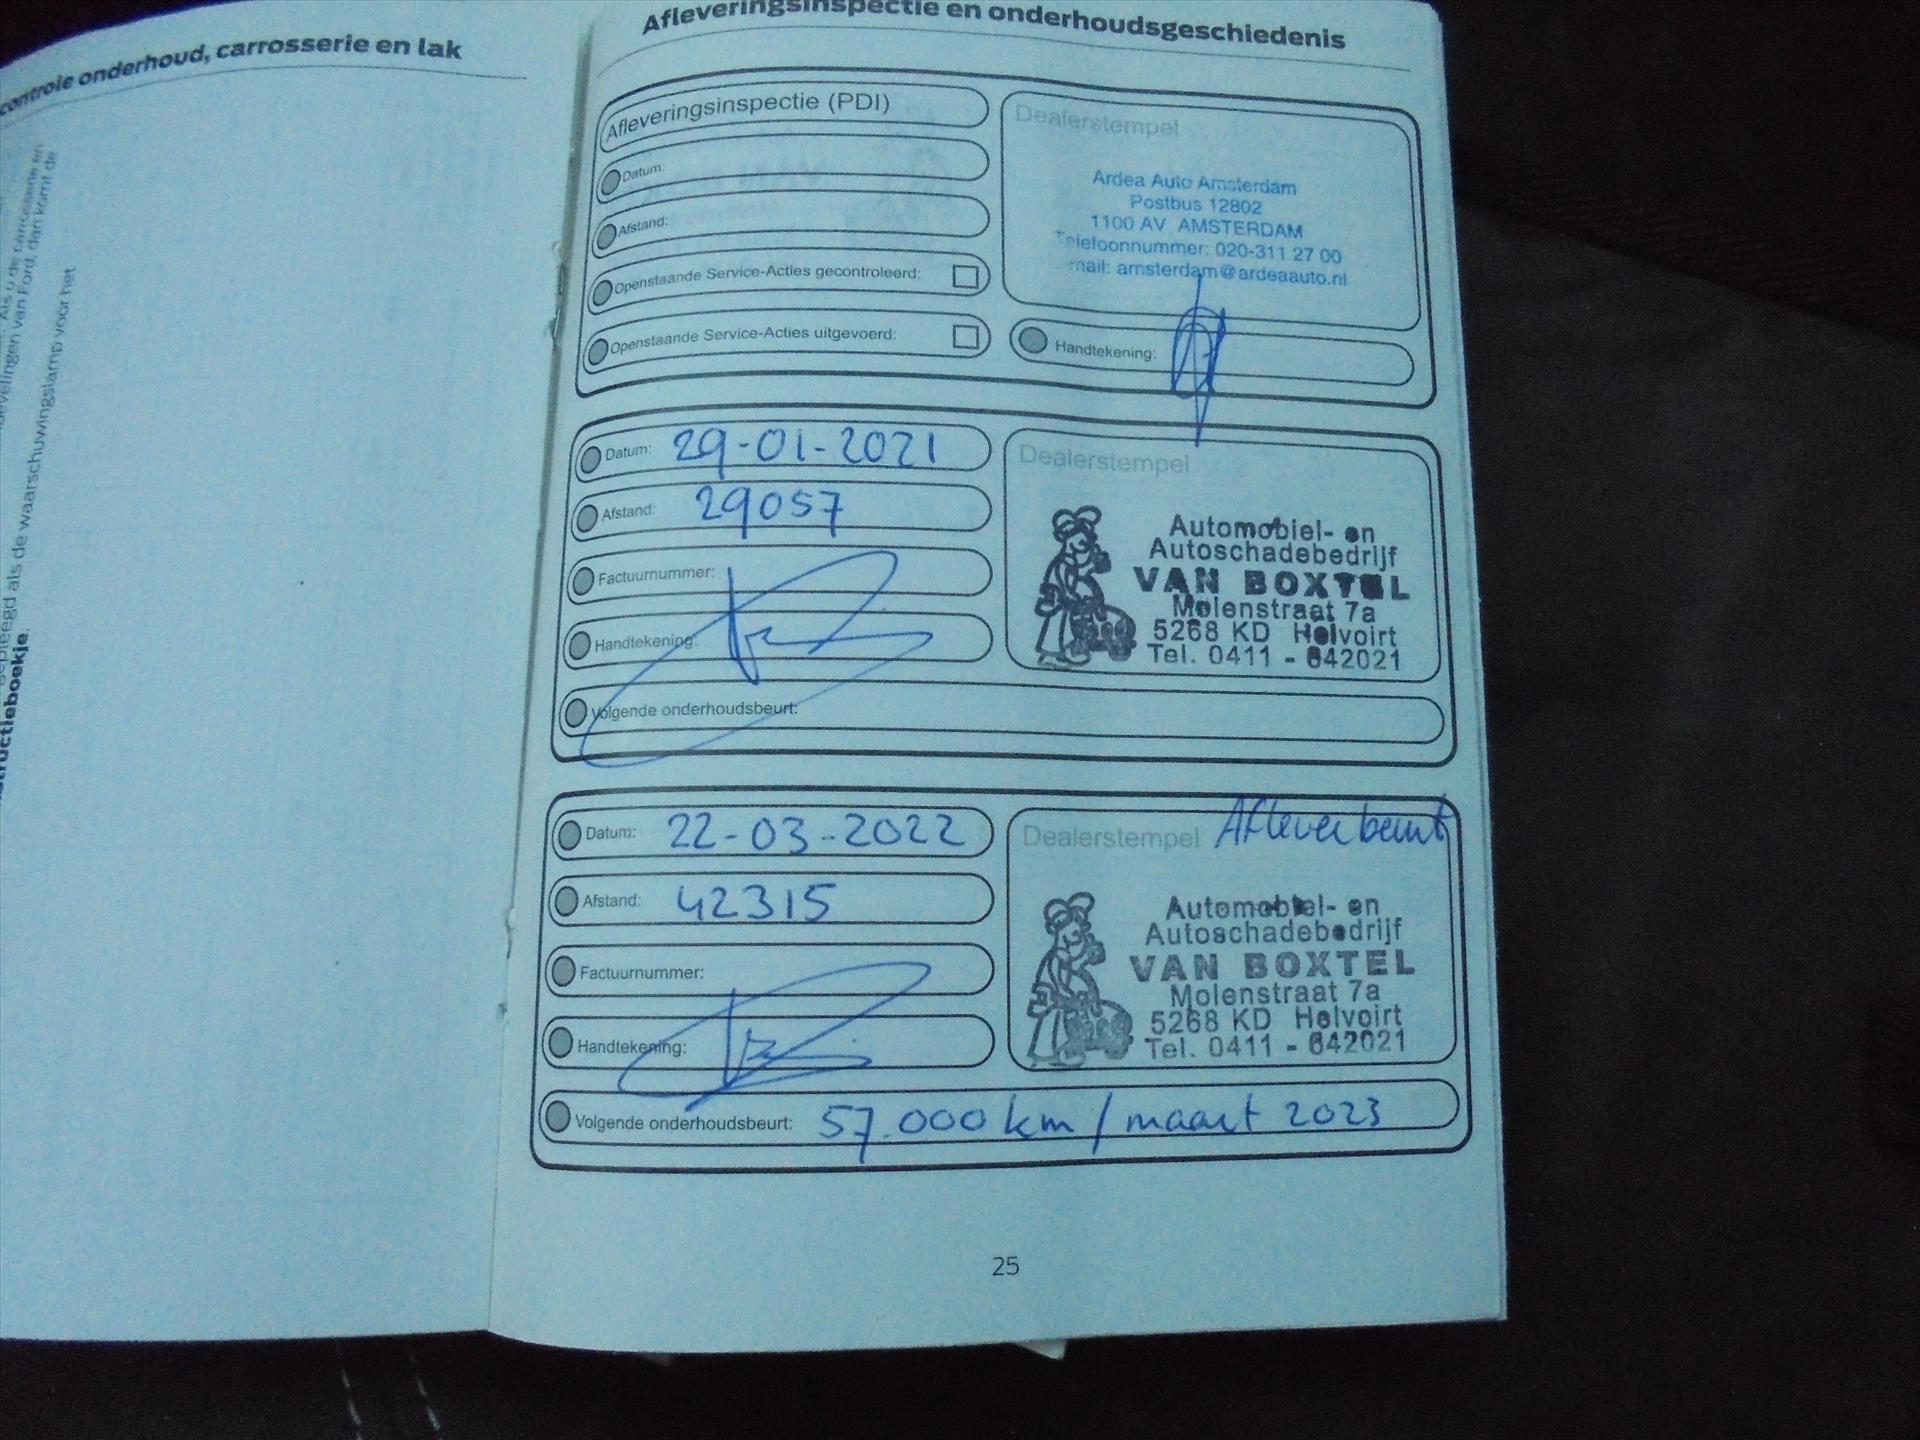 controle onderhoud, carrosserie en lak
Als u de carrosserie en
bevelingen van Ford, dan komt de
gepleegd als de waarschuwingslamp voor het
structieboekje.
Afleveringsinspectie en onderhoudsgeschiedenis
Afleveringsinspectie (PDI)
Datum:
Afstand:
Openstaande Service-Acties gecontroleerd:
Openstaande Service-Acties uitgevoerd:
Dealerstempel
Ardea Auto Amsterdam
Postbus 12802
1100 AV AMSTERDAM
Telefoonnummer: 020-311 27 00
mail: amsterdam@ardeaauto.nl
Handtekening:
Datum: 29-01-2021
Afstand: 29057
Factuurnummer:
Handtekening:
Volgende onderhoudsbeurt:
Dealerstempel
Automobiel- en
Autoschadebedrijf
VAN BOXTEL
Molenstraat 7a
5268 KD Helvoirt
Tel. 0411 - 642021
Datum: 22-03-2022
Afstand: 42315
Factuurnummer:
Handtekening:
Volgende onderhoudsbeurt: 57.000 km / maart 2023
Dealerstempel Afleverbeurt
Automobiel- en
Autoschadebedrijf
VAN BOXTEL
Molenstraat 7a
5268 KD Helvoirt
Tel. 0411 - 642021
25